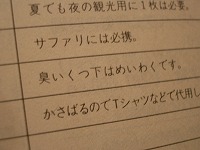 夏でも夜の観光用に1枚は必要。
サファリには必携。
臭いくつ下はめいわくです。
かさばるのでTシャツなどで代用し